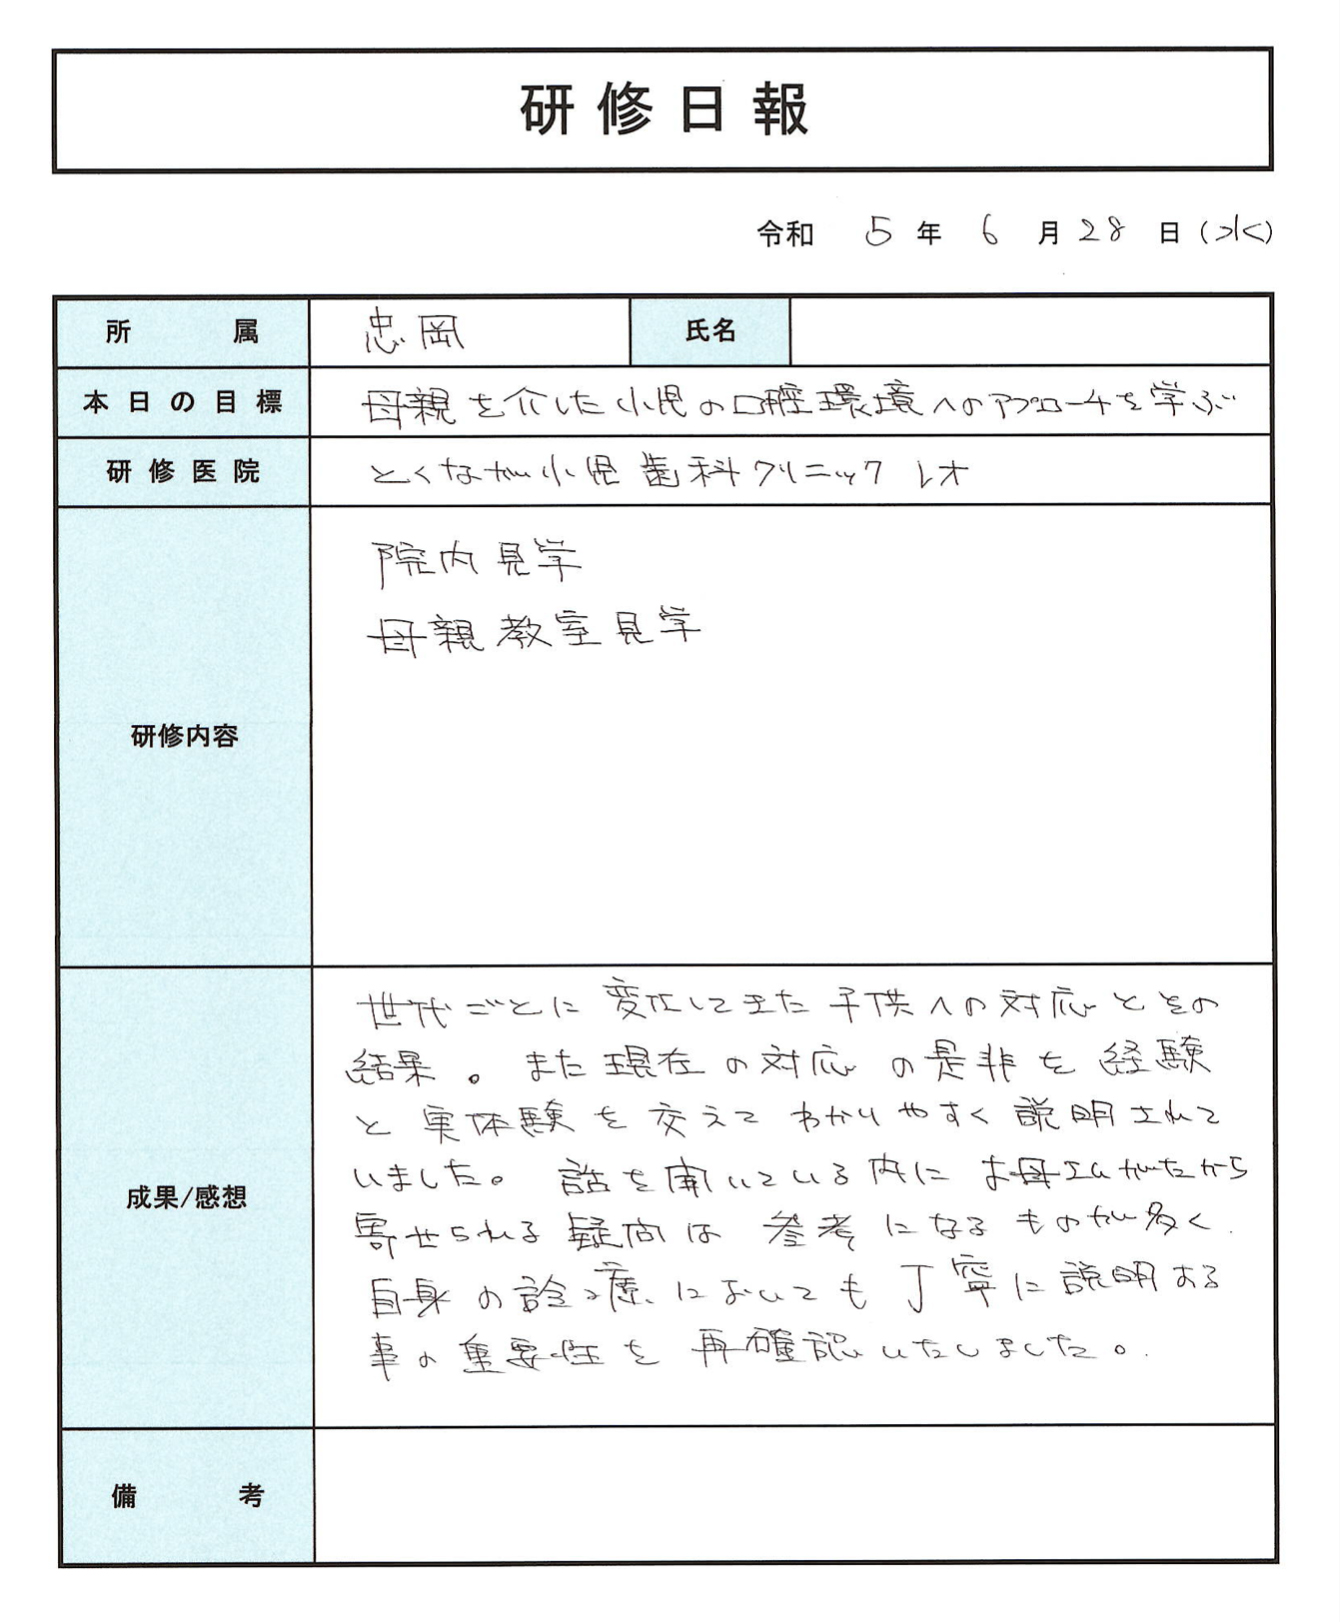 研修日報
令和 5年 6月28日(水)
所属 忠岡 氏名
本日の目標 母親を介した小児の口腔環境へのアプローチを学ぶ
研修医院 とくなが小児歯科クリニック レオ
研修内容
院内見学
母親教室見学
成果/感想
世代ごとに変化してきた子供への対応とその
結果。また現在の対応の是非を経験
と実体験を交えてわかりやすく説明されて
いました。話を聞いている内にお母さんがたから
寄せられる疑問は参考になるものが多く
自身の診療においても丁寧に説明する
事の重要性を再確認いたしました。
備考